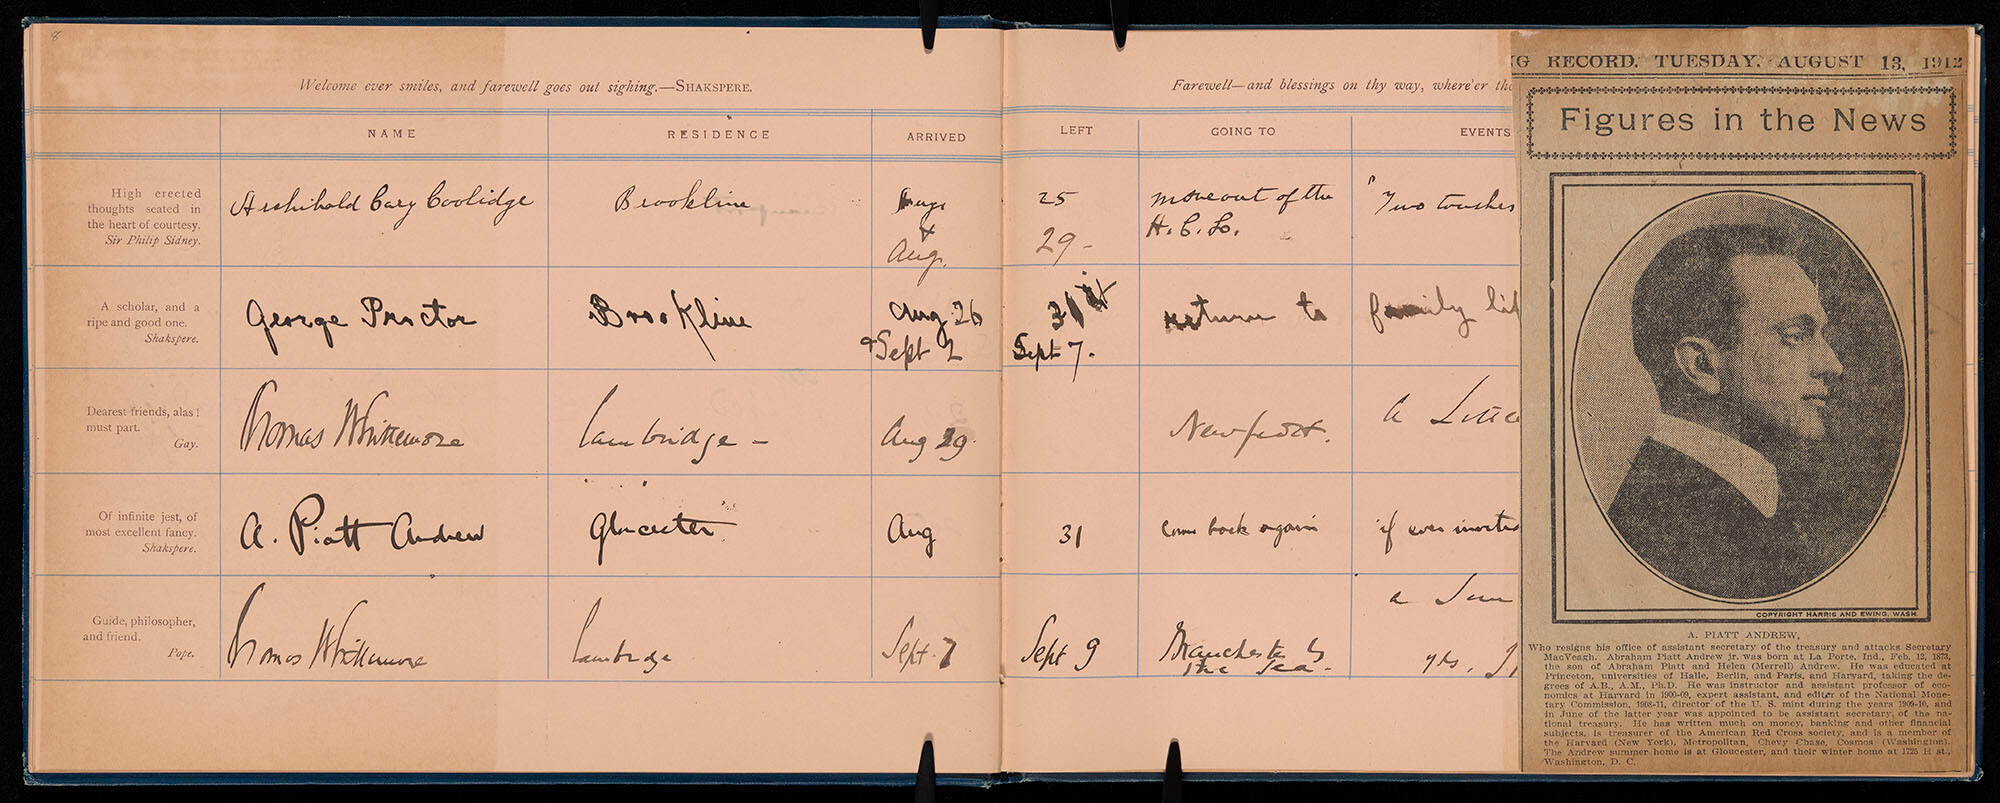 8
Welcome ever smiles, and farewell goes out sighing.—SHAKSPERE.
Farewell—and blessings on thy way, where'er tho
NAME RESIDENCE ARRIVED LEFT GOING TO EVENTS
High erected
thoughts seated in
the heart of courtesy.
Sir Philip Sidney.
Archibald Cary Coolidge Brookline 25 move out of the "Two touches
& H.C.L.
Aug. 29-
A scholar, and a
ripe and good one.
Shakspere.
George Proctor Brookline Aug 26 31st return to family lif
& Sept 2 Sept 7.
Dearest friends, alas!
must part.
Gay.
Thomas Whittemore Cambridge - Aug 29. Newport. a
Of infinite jest, of
most excellent fancy.
Shakspere.
A. Piatt Andrew Gloucester Aug 31 come back again if ever invited
Guide, philosopher,
and friend.
Pope.
Thomas Whittemore Cambridge Sept. 7 Sept 9 Manchester by
the Sea. a
yrs.
G RECORD. TUESDAY. AUGUST 13, 1912
Figures in the News
COPYRIGHT HARRIS AND EWING, WASH
A. PIATT ANDREW,
Who resigns his office of assistant secretary of the treasury and attacks Secretary
MacVeagh. Abraham Piatt Andrew jr. was born at La Porte, Ind., Feb. 12, 1873,
the son of Abraham Piatt and Helen (Merrell) Andrew. He was educated at
Princeton, universities of Halle, Berlin, and Paris, and Harvard, taking the de-
grees of A.B., A.M., Ph.D. He was instructor and assistant professor of eco-
nomics at Harvard in 1900-09, expert assistant, and editor of the National Mone-
tary Commission, 1908-11, director of the U. S. mint during the years 1909-10, and
in June of the latter year was appointed to be assistant secretary of the na-
tional treasury. He has written much on money, banking and other financial
subjects, is treasurer of the American Red Cross society, and is a member of
the Harvard (New York), Metropolitan, Chevy Chase, Cosmos (Washington).
The Andrew summer home is at Gloucester, and their winter home at 1725 H st.,
Washington, D. C.